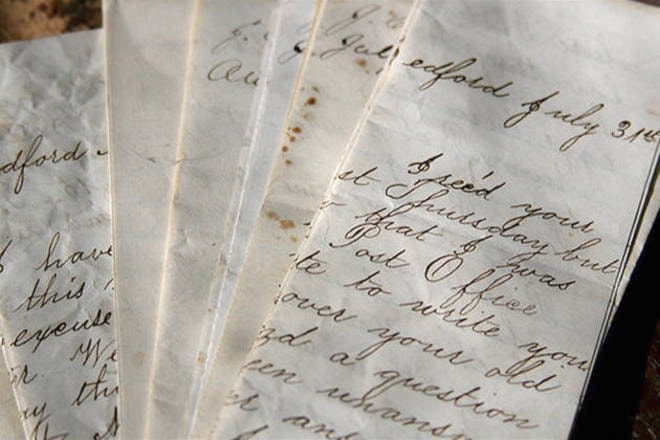 dford
I have
this
excuse
r. We
Au
J. Jul
edford July 31st
I rec'd your
st Thursday but
that I was
Post Office
te to write you
over your old
d a question
een unansw
er an